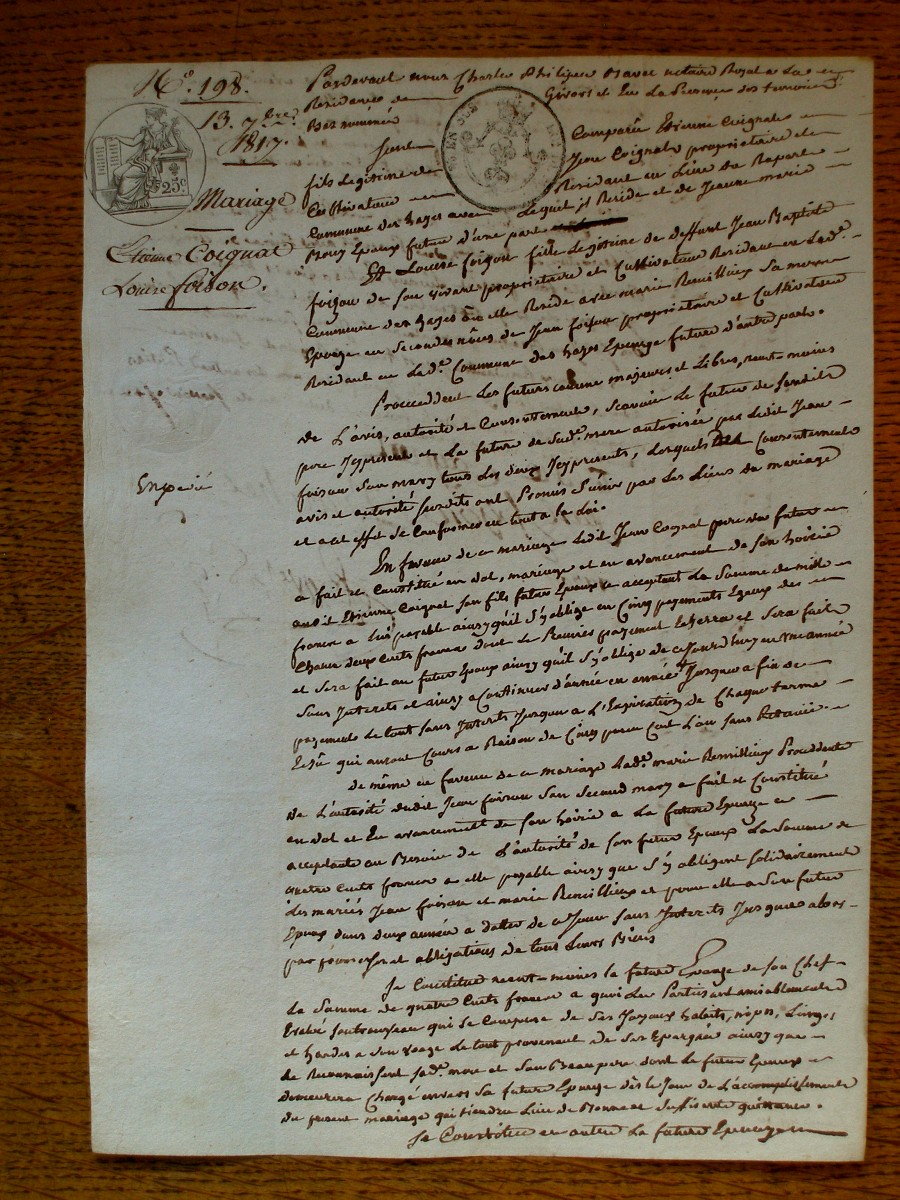 N.° 198.
13. 7bre.
1817.
25c
Mariage
Etienne Coignat
Louise foison.
Expedié
Pardevant nous Charles Philipe notaire Royal a La
Residence de Givors et En La Presence des temoins
Bas nommés
furent Comparus Etienne Coignat
fils Legitime de Jean Coignat propriétaire et
Cultivateur Residant au Lieu du
Commune des hayes avec Lequel il Reside et de Jeanne marie
Epoux future d'une part
Et Louise foison fille Legitime de deffunt Jean Baptiste
foison de son vivant proprietaire et Cultivateur Residant en Lade.
Commune des hayes où elle Reside avec marie Remillieux sa mere
Epouze en secondes nôces de Jean foison proprietaire et Cultivateur
Residant en Lade. Commune des hayes Epouze future d'autre part.
Proceddent Les futurs comme majeurs et Libres, neant-moins
De L'avis, autorité et Consentement, scavoir Le futur de sondit
pere Icy present et La future de sade. mere autorisée par Ledit Jean
foison son mary tous Les deux Icy presents, Lesquels Consentement
avis et autorité susdits ont Promis S'unir par Les Liens du mariage
et a cet effet se Conformer en tout a la Loi.
En faveur de ce mariage Ledit Jean Coignat pere du futur
a fait et Constitué en dot, mariage et en avancement de son hoirie
audit Etienne Coignat son fils futur Epoux ce acceptant La Somme de mille
francs a Lui payable ainsy qu'il S'y oblige en Cinq payements Egaux de
Chacun deux Cents francs dont Le Premier payement Echerra et sera fait
et sera fait au futur Epoux ainsy qu'il S'y oblige de ce Jourdhuy en une année
Sans Interets et ainsy a Continuer d'année en année Jusques a fin de
payements Le tout sans Interets Jusques a L'Expiration de Chaque terme
Echû qui auront Cours a Raison de Cinq pour Cent L'an sans Retenue
de même en faveur de ce mariage Lade. marie Remillieux Proceddente
De L'autorité dudit Jean foison Son Second mary a fait et Constitué
en dot et En avancement de son hoirie a La future Epouze ce
acceptante au Besoin de L'autorité de son futur Epoux La Somme de
quatre Cents francs a elle payable ainsy que S'y obligent solidairement
Les mariés Jean foison et marie Remillieux et pour elle a Son futur
Epoux dans deux années a datter de ce Jour sans Interets Jusques alors
par et obligations de tous Leurs Biens
Se Constitue neant-moins La future Epouze de son Chef
La Somme de quatre Cents francs a quoi Les Parties ont amiablement
Evalué son trousseau qui se Compose de ses Joyaux habits, nipes, Linges
et hardes a son usage Le tout provenant de ses Epargnes ainsy que
Le Reconnaissent sade. mere et son Beau pere dont Le futur Epoux
demeurera Chargé envers sa future Epouze dès Le Jour de L'accomplissement
du present mariage qui tiendra Lieu de Bonne et suffisante quittance.
Se Constitue en outre La future Epouze